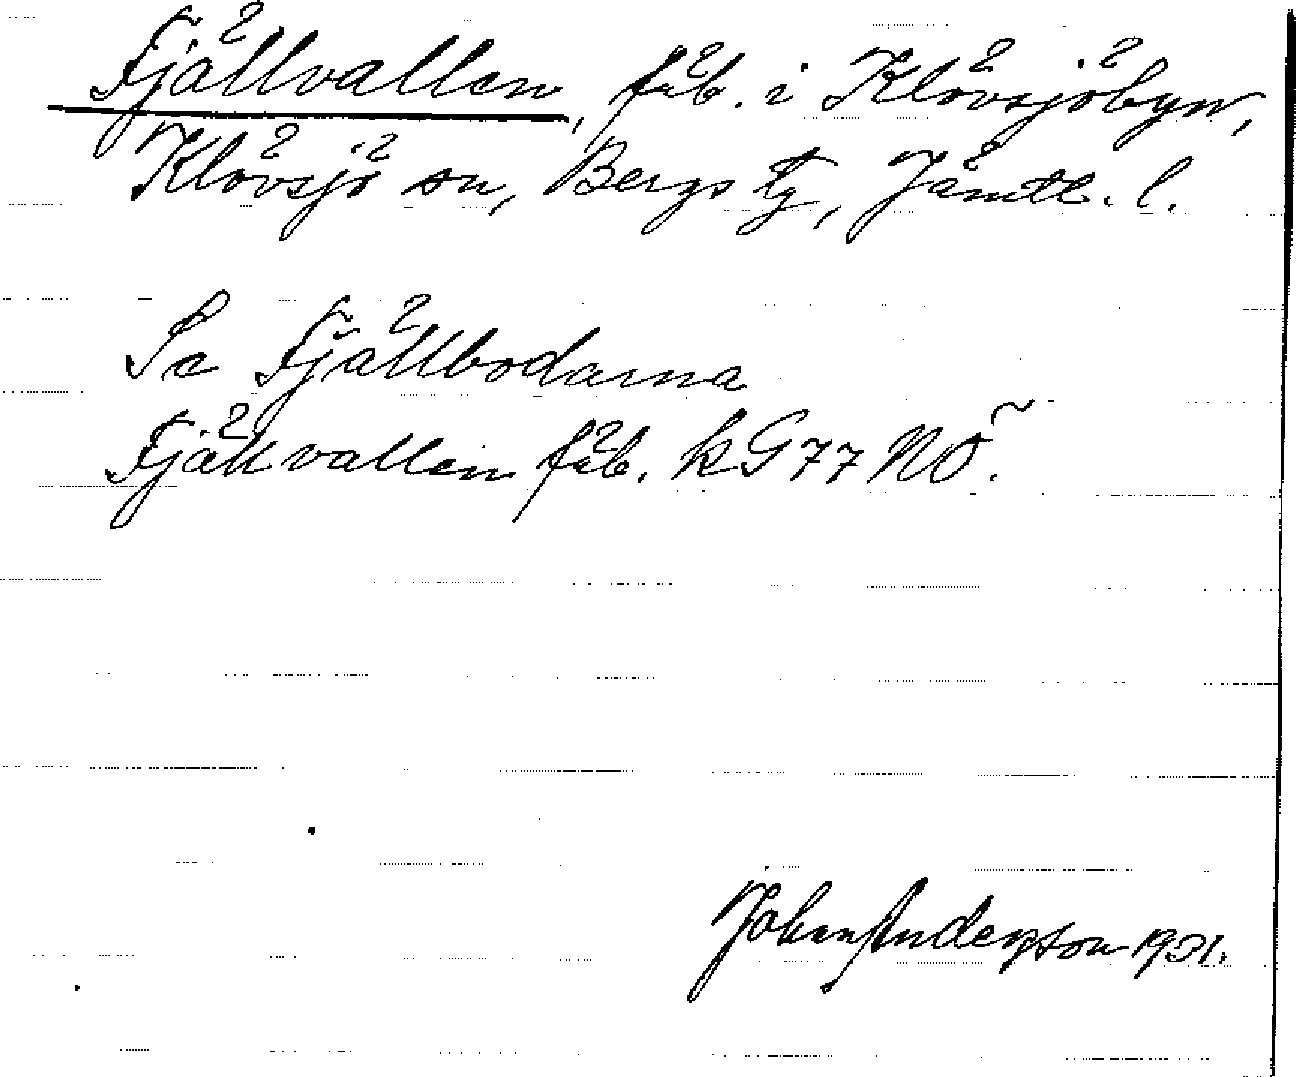 Fjällvallen, fäb. i Klövsjöbyn,
Klövsjö sn, Bergs tg, Jämtl. l.
Se Fjällbodarna
Fjällvallen fäb. kG77NÖ.
Johan Anderzson 1931.